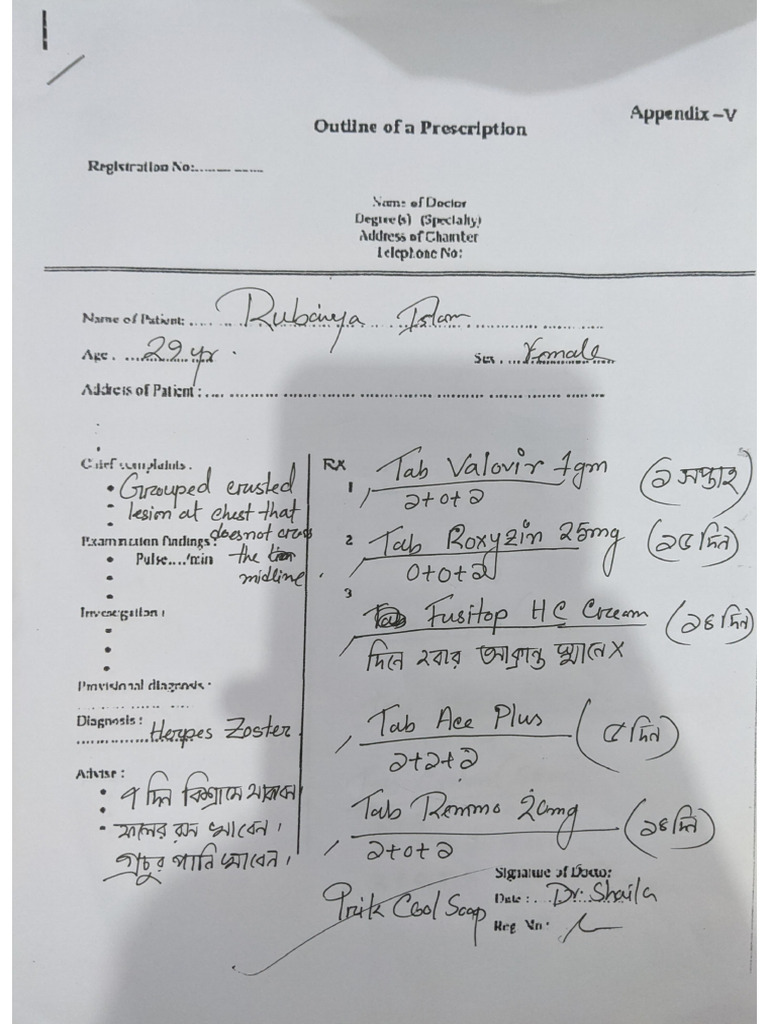 Appendix –V
Outline of a Prescription
Registration No:............ ............
Name of Doctor
Degree(s) (Specialty)
Address of Chamber
Telephone No:
Name of Patient: Rubaiya Islam
Age . 29 yr .
Sex . Female
Address of Patient :
Chief complaints .
• Grouped crusted
lesion at chest that
does not cross
the
midline .
Examination findings :
• Pulse..../min
Investigation :
Provisional diagnosis :
Diagnosis : Herpes Zoster
Advise :
• ৭ দিন বিশ্রামে থাকবেন।
• ফলের রস খাবেন।
প্রচুর পানি খাবেন।
RX
1 Tab Valovir 1gm (১ সপ্তাহ)
১+০+১
2 Tab Roxyzin 25mg (১৫ দিন)
০+০+১
3 Fusitop HC Cream (১৪ দিন)
দিনে ২বার আক্রান্ত স্থানে X
Tab Ace Plus (৫ দিন)
১+১+১
Tab Remmo 20mg (১৪ দিন)
১+০+১
Cool Soap
Signature of Doctor
Date : Dr. Shaila
Reg No :